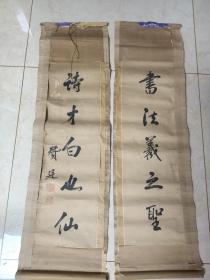 書法羲之聖
詩才白也仙